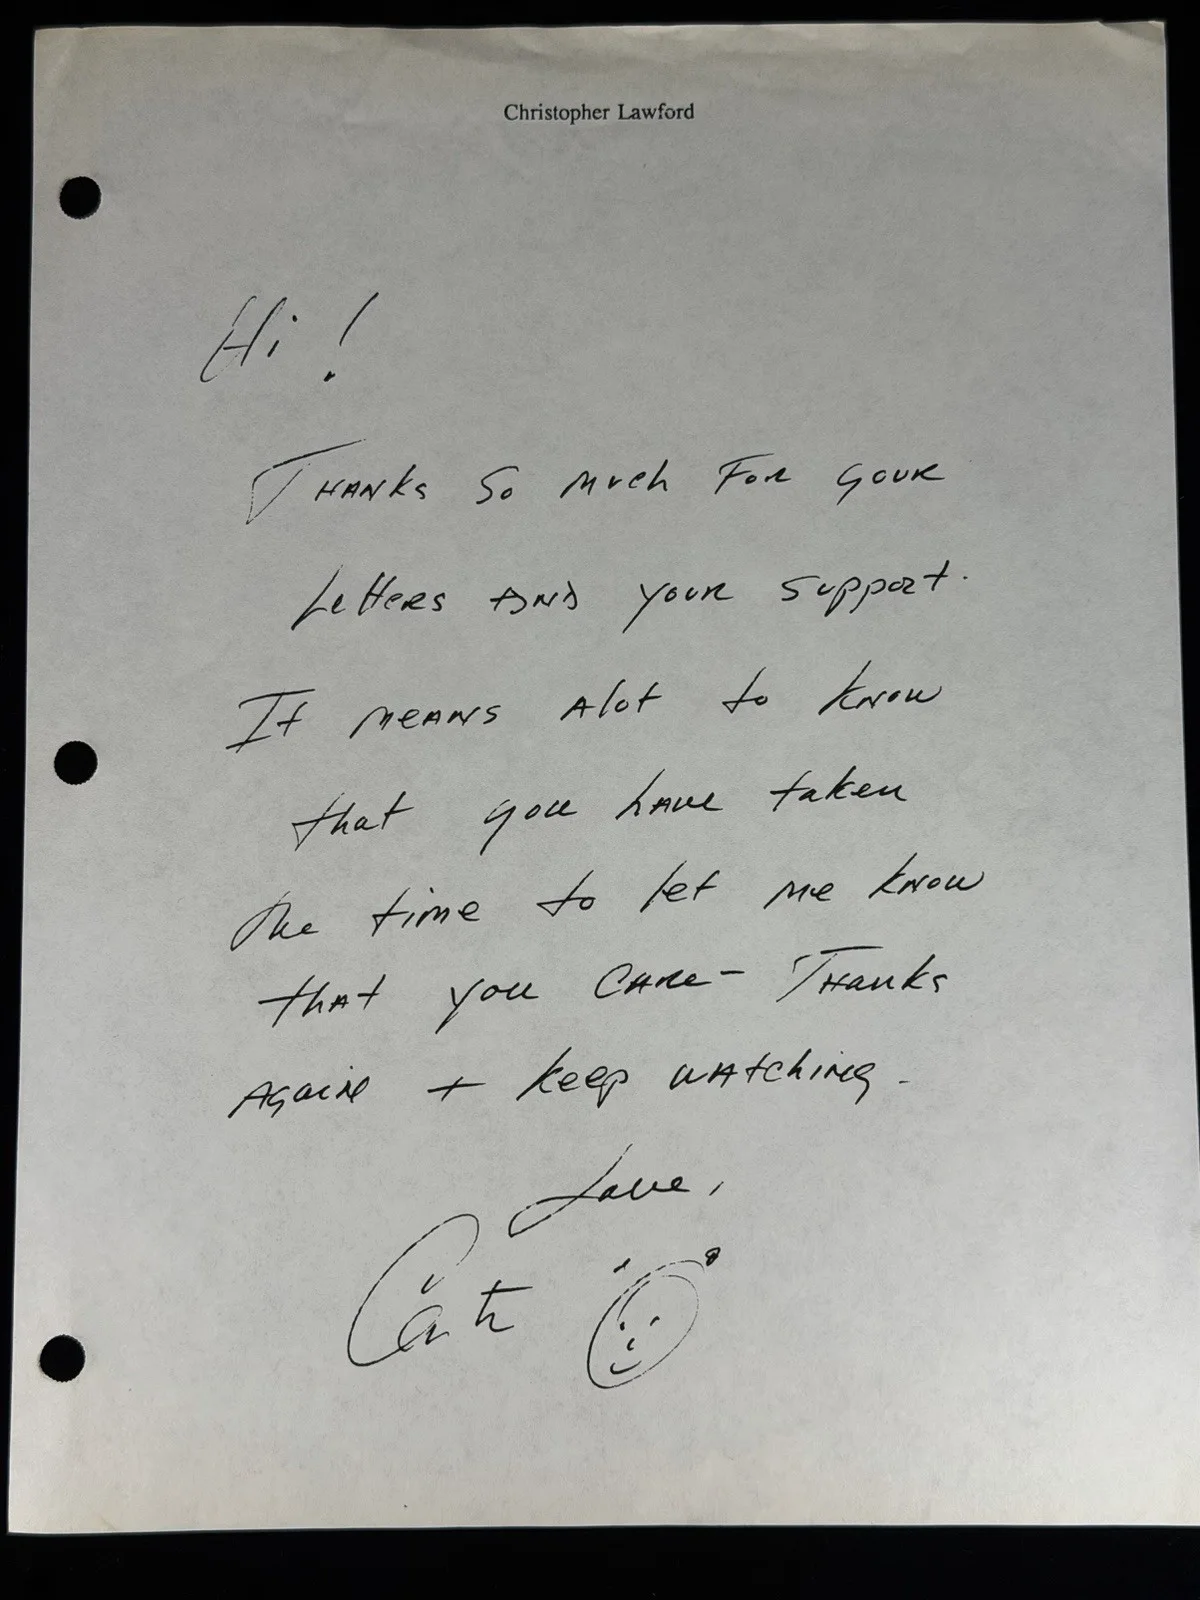 Christopher Lawford
Hi !
THANKS SO MUCH FOR YOUR
LetteRS AND YOUR SUPPORT.
It MEANS Alot to KNOW
that you HAVE taken
the time to let me KNOW
tHAt you CARE - THanks
AGAIN + KEEP WAtching.
Love,